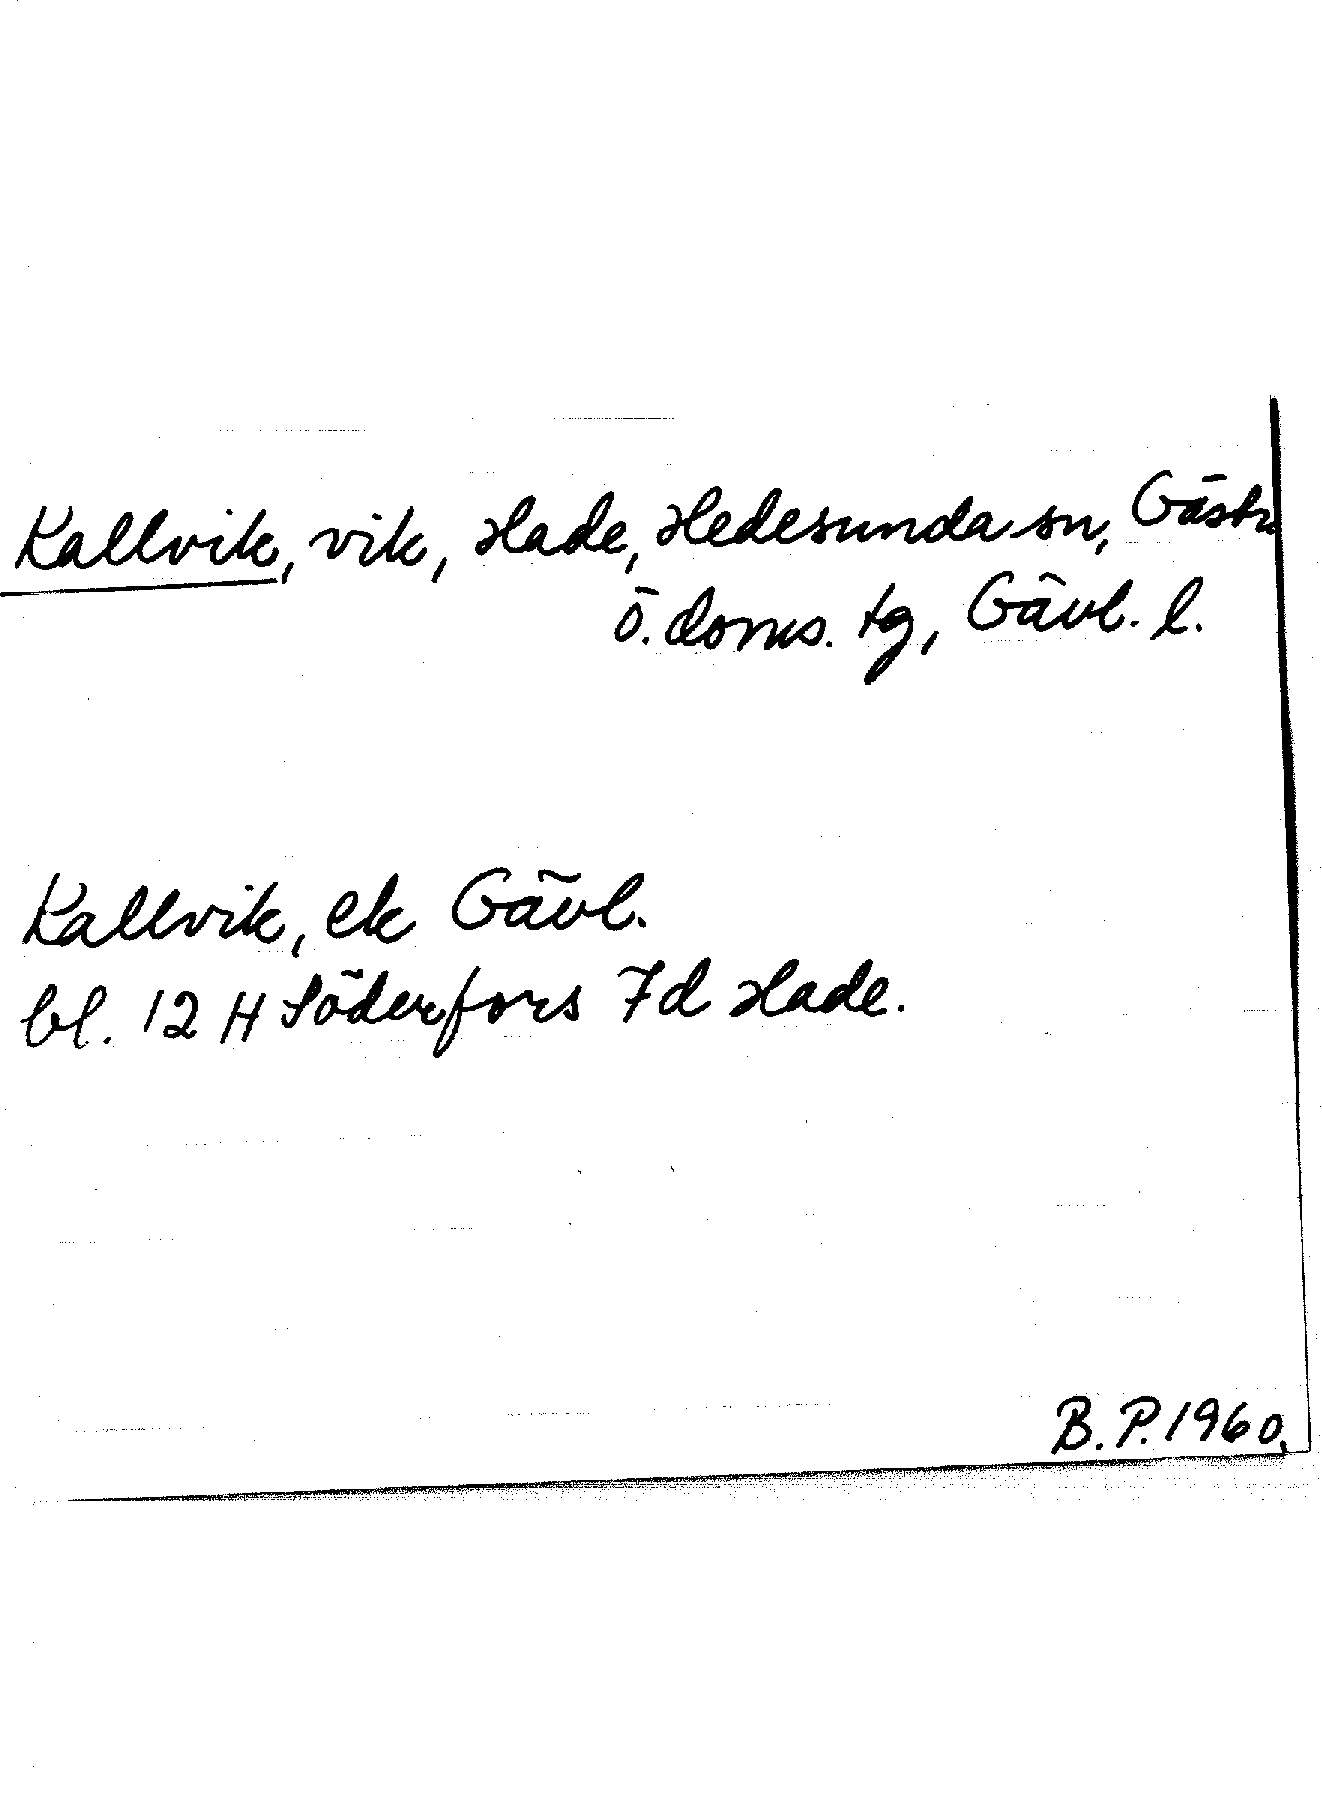 Kallvik, vik, Hade, Hedesunda sn, Gästr
ö. doms. tg, Gävl. l.
Kallvik, ek Gävl.
bl. 12 H Söderfors 7d Hade.
B. P. 1960.